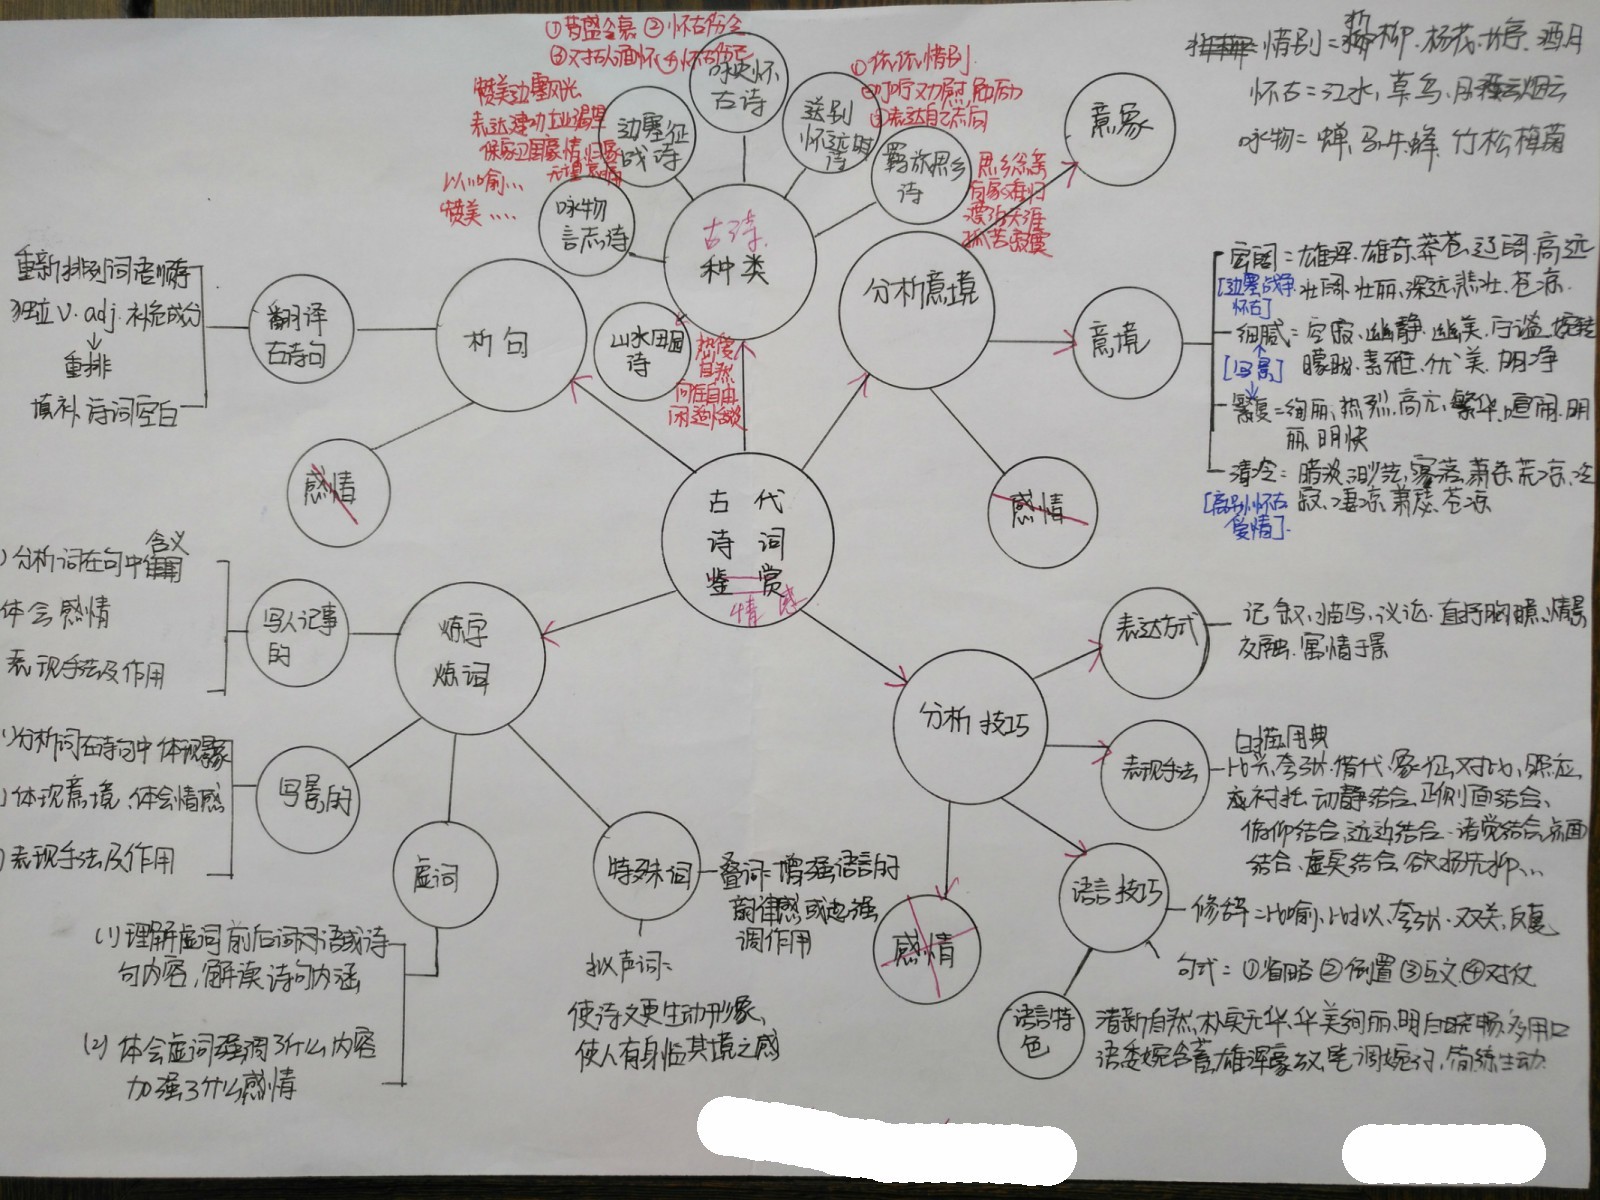 古代
诗词
鉴赏
情感
古诗
种类
咏物
言志诗
以...喻...
赞美....
边塞征
战诗
赞美边塞风光
表达建功立业渴望
保家卫国豪情.归家
无望哀痛
咏史怀
古诗
①昔盛今衰 ②怀古伤今
③对古人缅怀④怀古伤己
送别
怀远诗
①依依惜别
②叮咛劝慰勉励
③表达自己志向
羁旅思乡
诗
思乡念亲
有家难归
漂泊天涯
孤苦寂寞
山水田园
诗
热爱
自然
向往自由
闲适恬淡
分析意境
意象
惜别=折柳.杨花.长亭.酒月
怀古=江水,草鸟,月 烟云
咏物=蝉.马.牛.蜂.竹松梅菊
意境
空阔=雄浑.雄奇.莽苍.辽阔.高远
壮阔.壮丽.深远.悲壮.苍凉.
[边塞战争
怀古]
细腻=空寂.幽静.幽美.宁谧.
朦胧.素雅.优美.明净
[写景]
繁复=绚丽,热烈,高亢,繁华,喧闹.明
丽、明快
清冷=暗淡.渺茫,寥落,萧条.荒凉.冷
寂.凄凉.萧瑟.苍凉
爱情].
感情
析句
翻译
古诗句
重新排列词语顺序
独立v.adj.补充成分
重排
填补诗词空白
感情
炼字
炼词
写人记事
的
)分析词在句中含义
体会感情
表现手法及作用
写景的
)分析词在诗句中体现景象
)体现意境、体会情感
)表现手法及作用
虚词
(1)理解虚词前后词对语或诗
句内容,解读诗句内涵
(2)体会虚词强调了什么内容
加强了什么感情
特殊词
叠词=增强语言的
韵律感或起强
调作用
拟声词=
使诗文更生动形象、
使人有身临其境之感
分析技巧
表达方式
记叙.描写.议论.直抒胸臆.情景
交融.寓情于景
表现手法
白描.用典
比兴.夸张.借代.象征.对比,照应,
衬托.动静结合.正侧面结合、
俯仰结合.远近结合.诸觉结合.点面
结合、虚实结合.欲扬先抑...
语言技巧
修辞=比喻.比拟.夸张.双关.反复
句式=①省略②倒置③互文④对仗
语言特
色
清新自然,朴实无华.华美绚丽.明白晓畅.多用口
语.委婉含蓄.雄浑豪放.笔调婉约,简练生动
感情